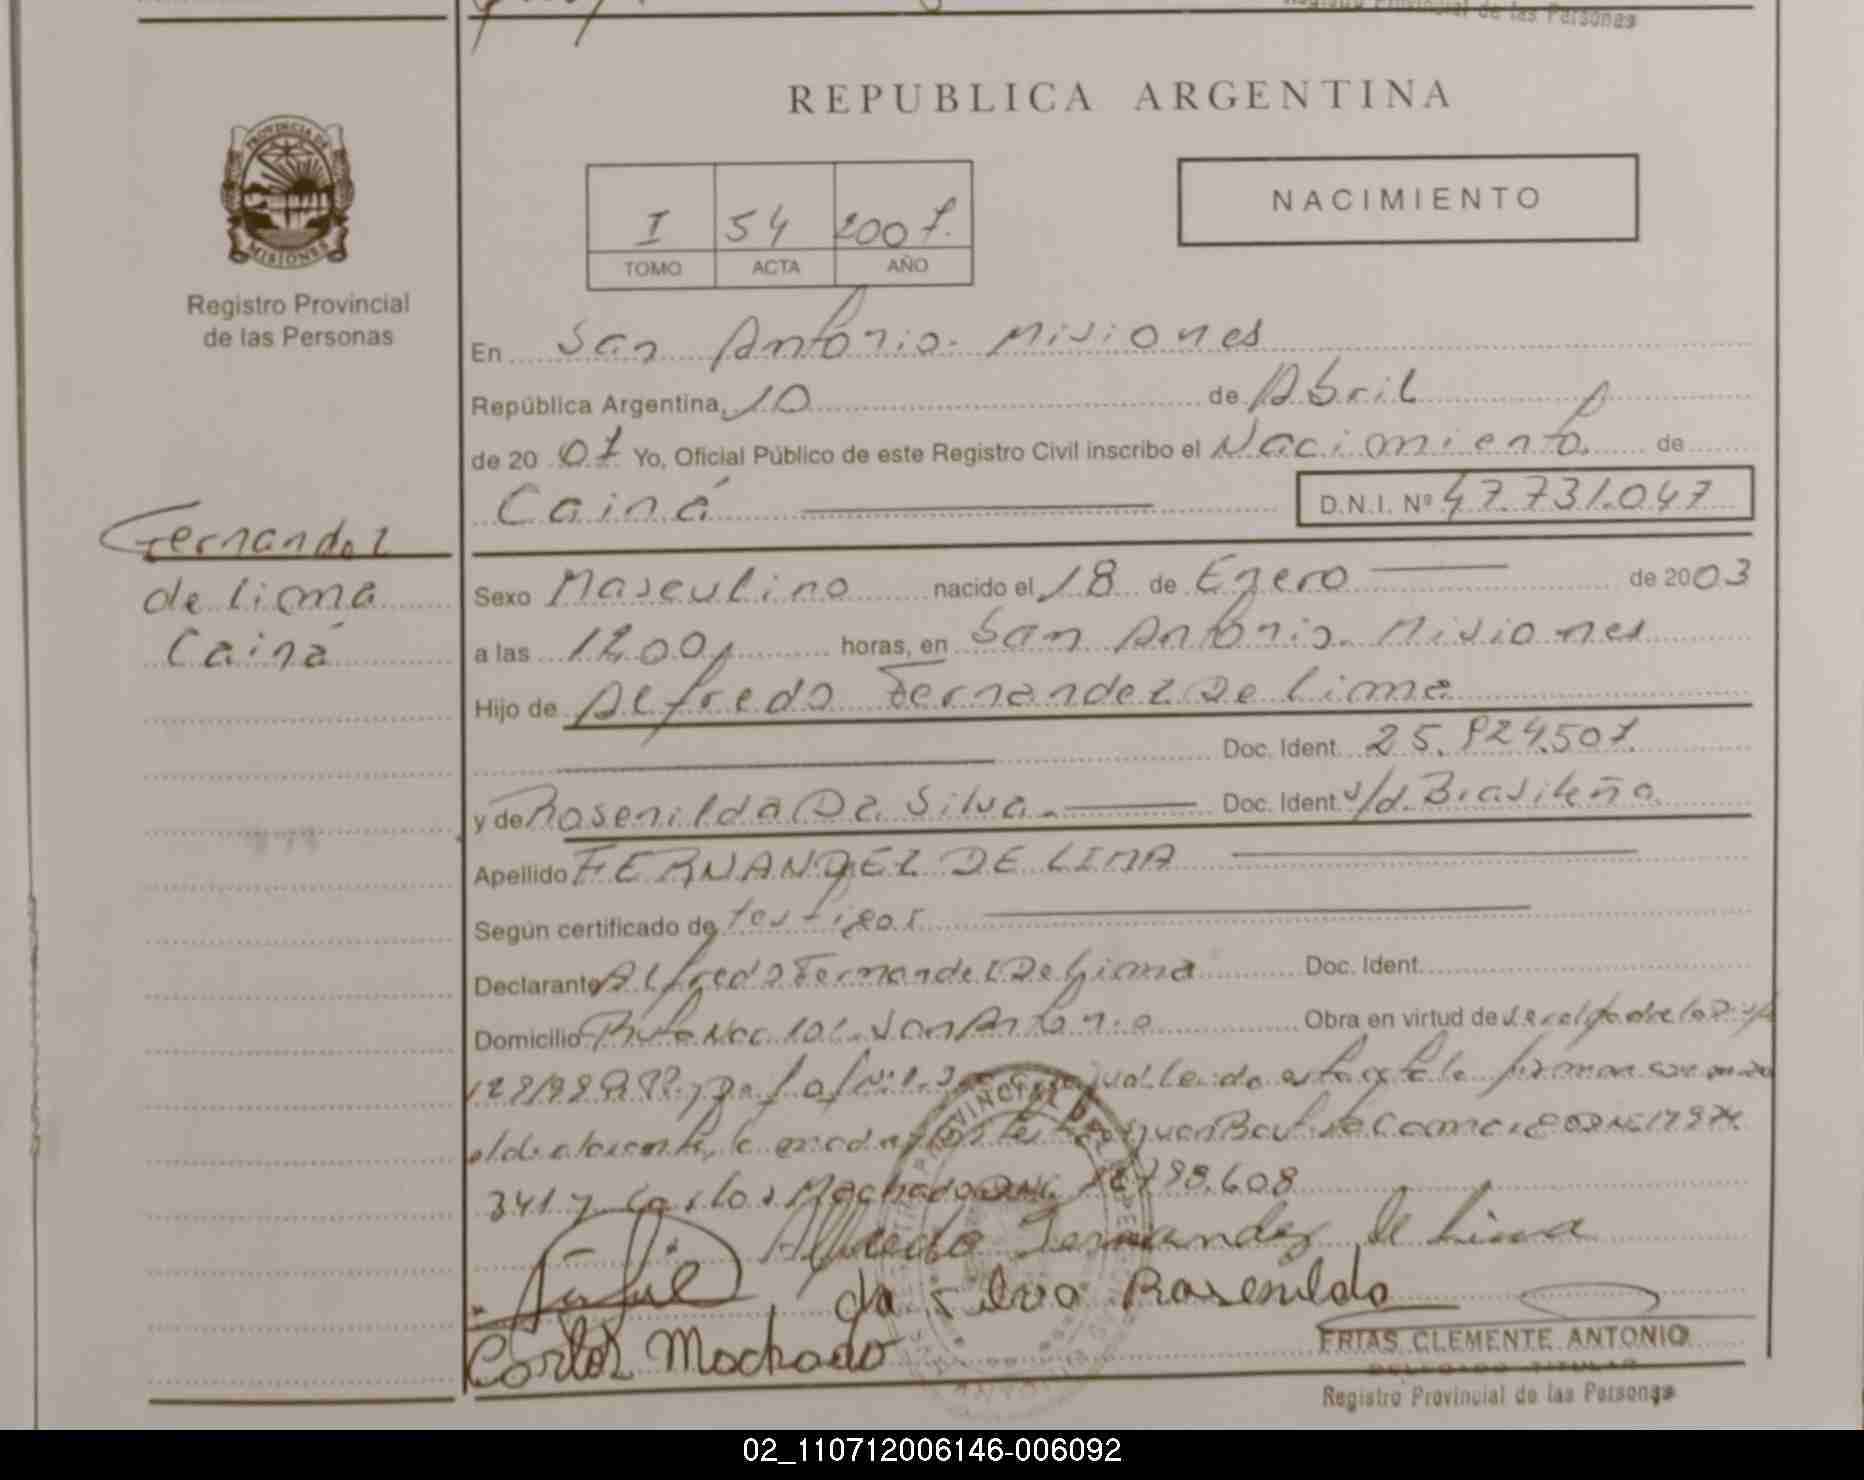 Registro Provincial de las Personas
REPUBLICA ARGENTINA
PROVINCIA DE
MISIONES
Registro Provincial
de las Personas
I 54 2007.
TOMO ACTA AÑO
NACIMIENTO
En San Antonio. Misiones
República Argentina, 10 de Abril
de 20 07 Yo, Oficial Público de este Registro Civil inscribo el Nacimiento de
Cainá D.N.I. Nº 47.731.047
Fernandez
de lima
Cainá
Sexo Masculino nacido el 18 de Enero de 2003
a las 12.00 horas, en San Antonio. Misiones
Hijo de Alfredo Fernandez De lima
Doc. Ident. 25.924.507.
y de Rosenilda Da Silva. Doc. Ident. s/d. Brasileña.
Apellido FERNANDEZ DE LIMA
Según certificado de testigos
Declarante Alfredo Fernandez De Lima Doc. Ident.
Domicilio Ruta Nac. 101. San Antonio Obra en virtud de
leida esta acta la firman
el declarante, la madre y los testigos Juan Bautista
341 y Carlos Machado
Alfredo Fernandez de Lima
da silva Rosenilda
Carlos Machado
FRIAS CLEMENTE ANTONIO
DELEGADO TITULAR
Registro Provincial de las Personas
02_110712006146-006092